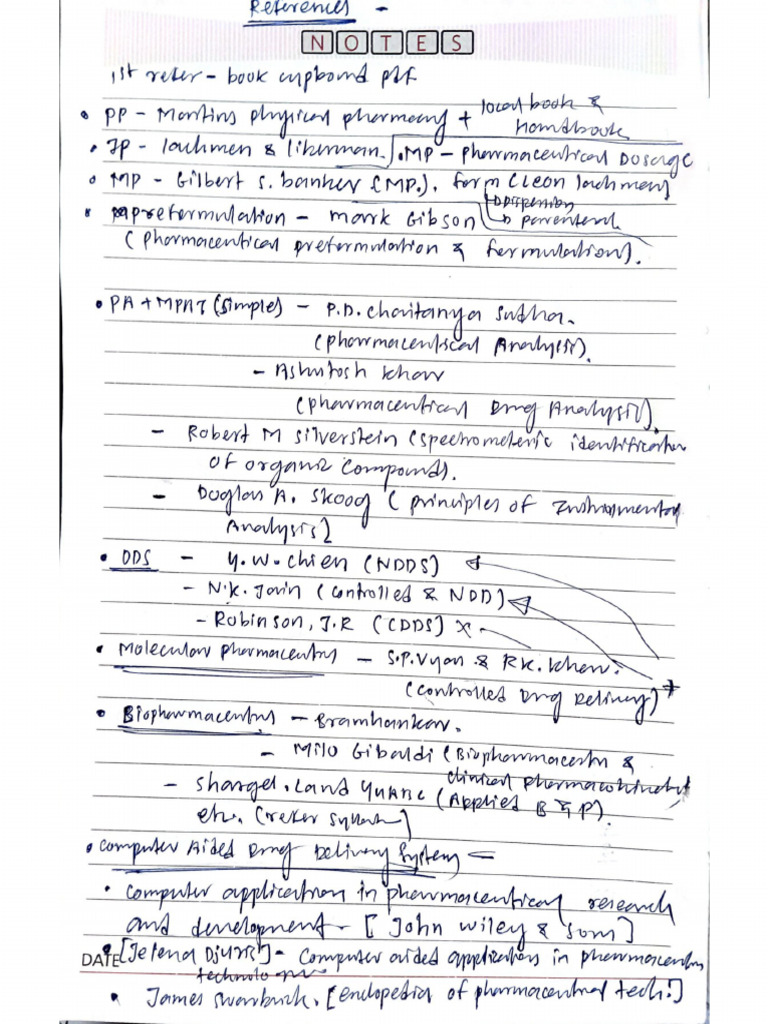 References -
NOTES
1st refer - book cupboard pdf
• PP - Martins physical pharmacy + local book &
Handbook
• IP - lachmen & liberman. • MP - pharmaceutical Dosage
• MP - Gilbert S. banker (MP.). form (Leon lachmen)
• preformulation - mark Gibson
Dispersion
→ parenteral
(pharmaceutical preformulation & formulation).
• PA + MPAT (simple) - P.D. chaitanya sudha.
(pharmaceutical Analysis).
- Ashutosh khar
(pharmaceutical Drug Analysis).
- Robert M silverstein (spectrometeric identification
of organic compounds.
- Douglas A. Skoog (principles of Instrumental
Analysis]
• DDS - Y.W. Chien (NDDS)
- N.K. Jain (controlled & NDD)
- Robinson, J.R (CDDS) x
• Molecular pharmaceutics - S.P. Vyas & R.K. khar.
(controlled Drug Delivery) *
• Biopharmaceutics - Bramhankar.
- Milo Gibaldi (Biopharmaceutics &
clinical pharmacokinetics
- shargel. L and YUABC (Applied B & P).
etc. (refer syllabus)
• computer Aided Drug Delivery System -
• computer application in pharmaceutical research
and development - [John wiley & sons]
• [Jelena Djuris] - computer aided application in pharmaceutics
DATE
technology
• James swarbrick. [enclopedia of pharmaceutical tech.]